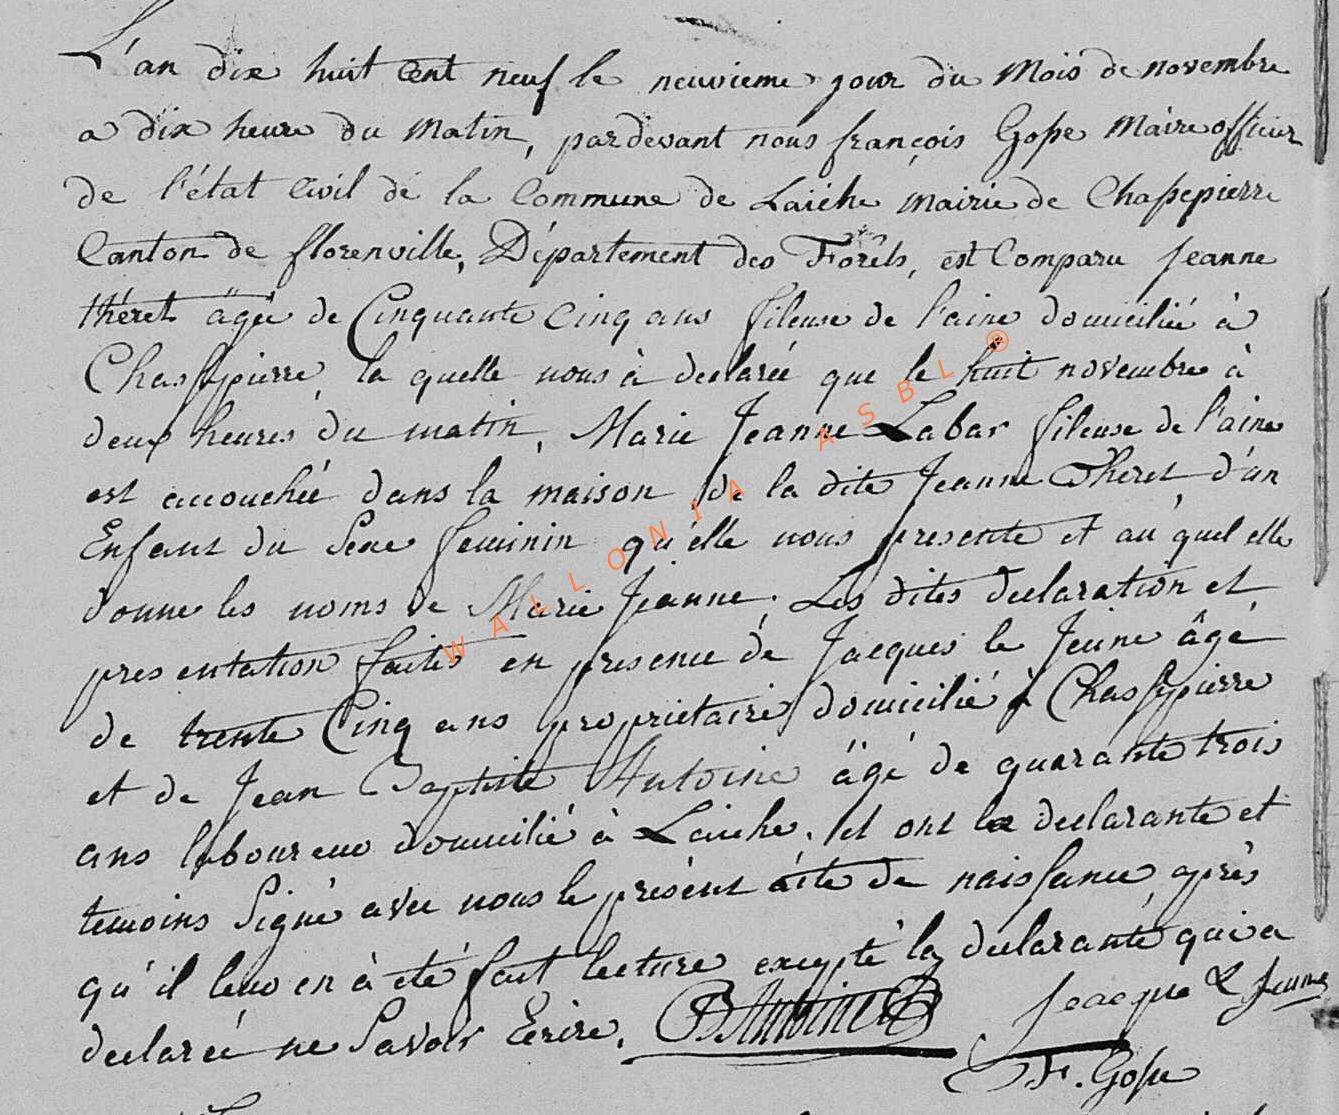 L'an dix huit Cent neuf le neuvieme jour du Mois de novembre
a dix heure du Matin, pardevant nous françois Gosse Maire officier
de l'état Civil de la Commune de Laiche mairie de Chassepierre
Canton de florenville, Département des Forêts, est Comparu Jeanne
théret âgée de Cinquante Cinq ans fileuse de l'aine domiciliée à
Chassepierre, la quelle nous à declarée que le huit novembre à
deux heures du matin, Marie Jeanne Labar fileuse de l'aine
est accouchée dans la maison de la dite Jeanne Theret d'un
Enfant du Sexe feminin qu'elle nous presente et au quel elle
donne les noms de Marie Jeanne. Les dites declaration et
presentation faites en presence de Jacques le Jeune âgé
de trente Cinq ans proprietaire domicilié à Chassepierre
et de Jean Baptiste Antoine âgé de quarante trois
ans laboureur domicilié à Laiche. et ont la declarante et
temoins Signé avec nous le présent acte de naissance après
qu'il leur en à eté fait lecture excepté la declarante qui a
declareé ne Savoir Ecrire.
JBAntoine
Jeacque L Jeune
F. Gosse
WALLONIA ASBL ®